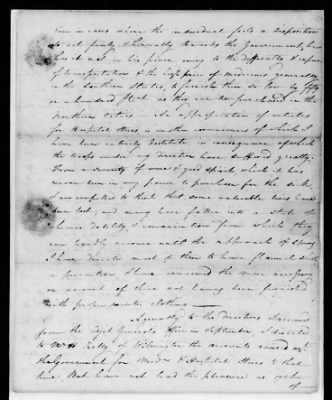 Even in cases where the individual feels a disposition
to act justly & liberally towards the Government,
has it not in his power owing to the difficulty & expense
of transportation & the high price of medicines generally
in the Southern States, to furnish them so low by fifty
or a hundred Pct. as they can be purchased in the
Northern cities. An appropriation of articles
for Hospital Stores is another convenience of which I
have been entirely destitute in consequence of which
the troops under my direction have suffered greatly.
From a scarcity of wine & good spirits which it has
never been in my power to purchase for the sick,
I am compelled to think that some valuable lives have
been lost, and many have fallen into a state of
chronic debility & emaciation from which they
can hardly recover until the approach of Spring.
I have directed most of them to have flannel shirts
a precaution I have conceived the more necessary
on account of their not having been furnished
with proper winter clothing.
Agreeably to the directions I received
from the Adjt. Generals Office in September I directed
to Mr. Kelly of Wilmington the accounts
the Government for Meds. & Hospital Stores to that
time, But have not had the pleasure as yet
of